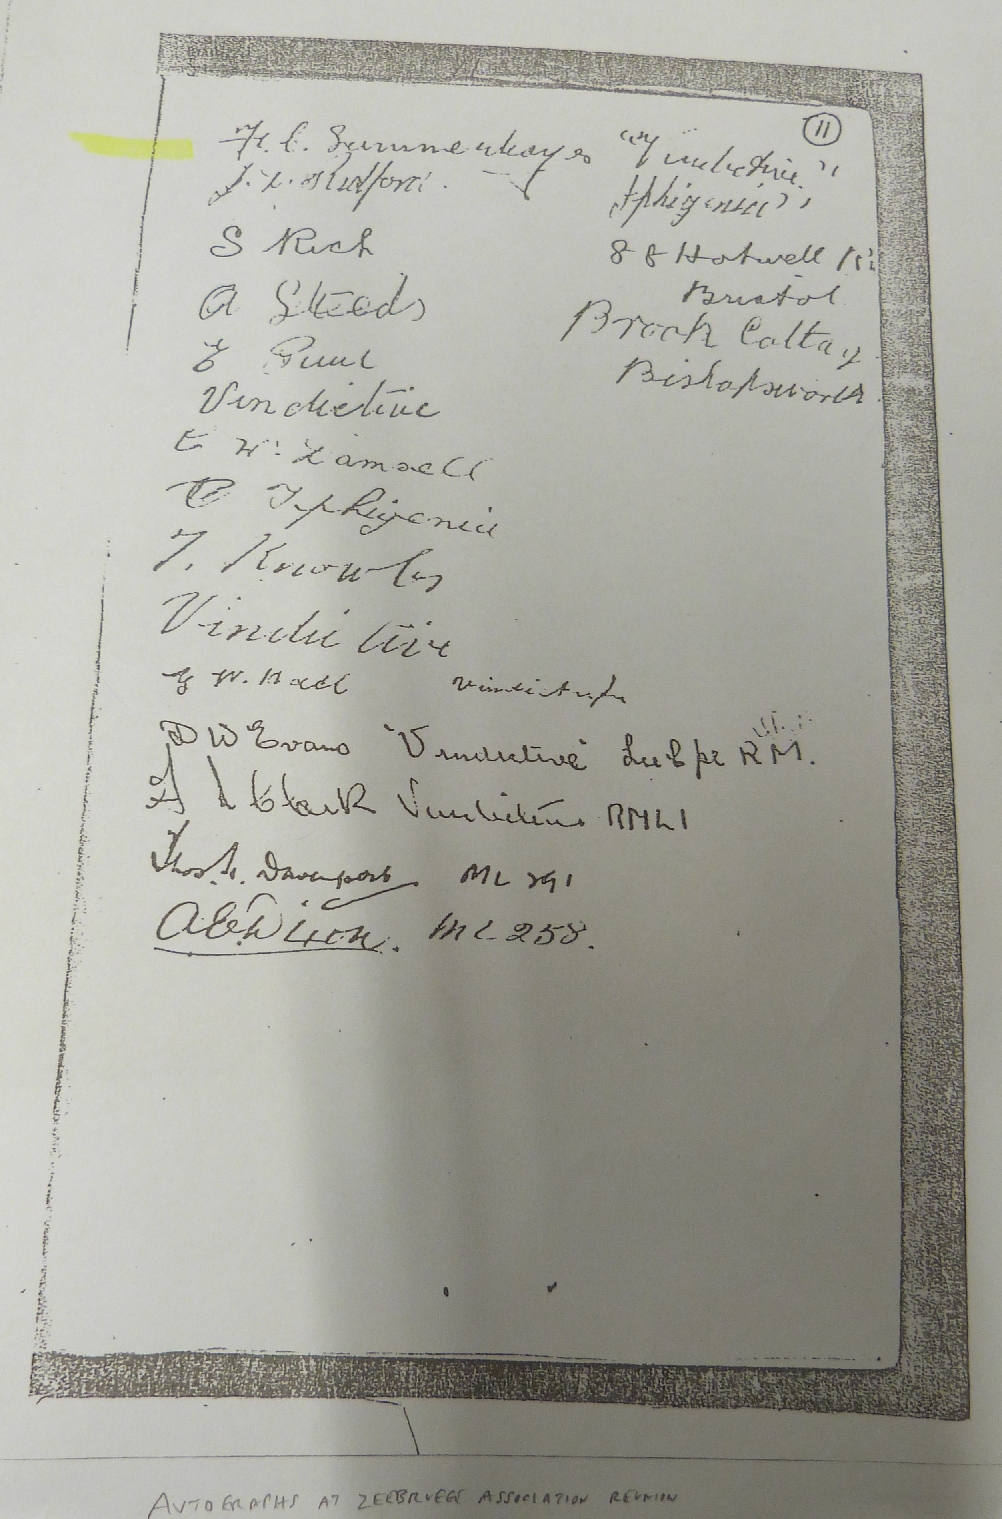 11
F. C. Summerhayes "Vindictive"
Iphigenia"
S Rich 88 Hotwell
Bristol
A Steeds Brook Cottage
E Bishopsworth
Vindictive
E W.
Iphigenia
T. Knowles
Vindictive
W. Hall
D W Evans "Vindictive" RM.
Clark Vindictive RMLI
Thos. Davenport ML 291
A E Dixon. ML 258.
AUTOGRAPHS AT ZEEBRUGGE ASSOCIATION REUNION